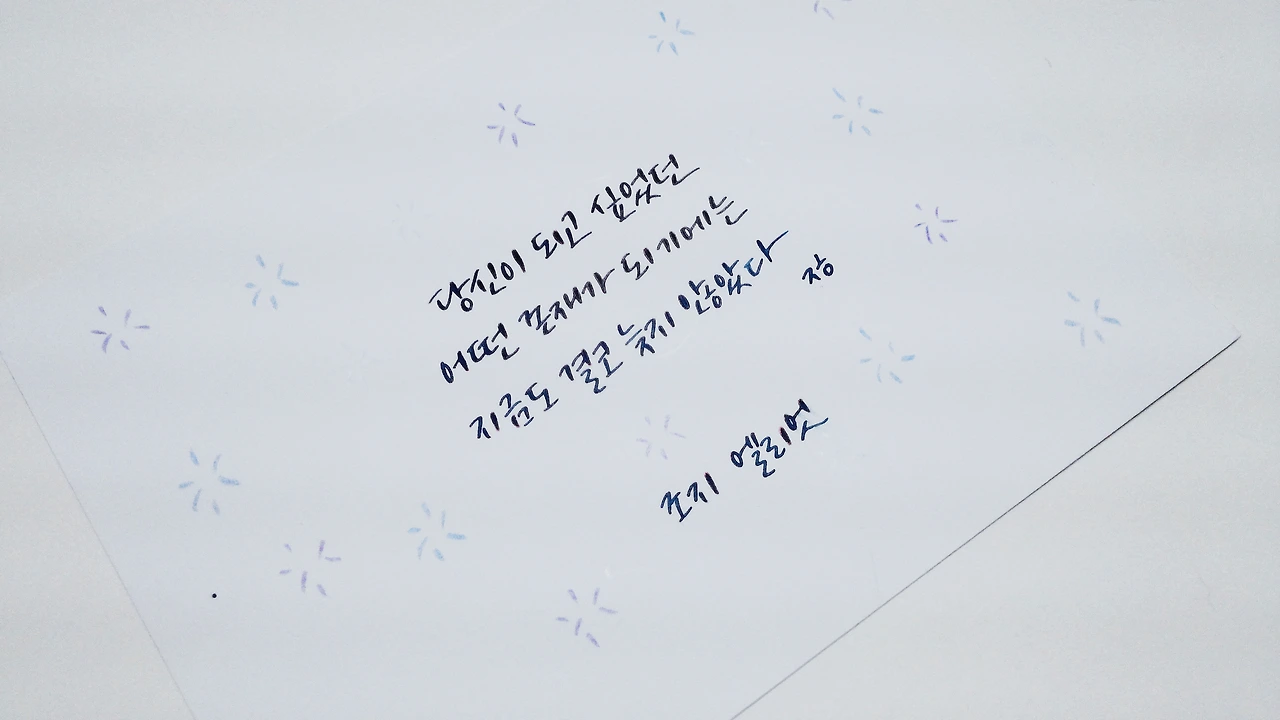 당신이 되고 싶었던
어떤 존재가 되기에는
지금도 결코 늦지 않았다
조지 엘리엇